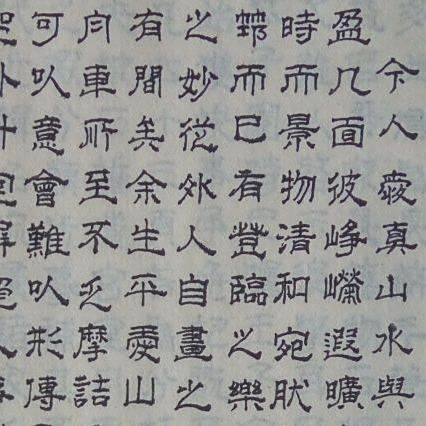 今人愛真山水與
盈几面彼崢嶸遐曠
時而景物清和宛肰
筇而已有登臨之樂
之妙從外入自畫之
有間矣余生平愛山
舟車所至不乏摩詰
可㕥意會難㕥形傳